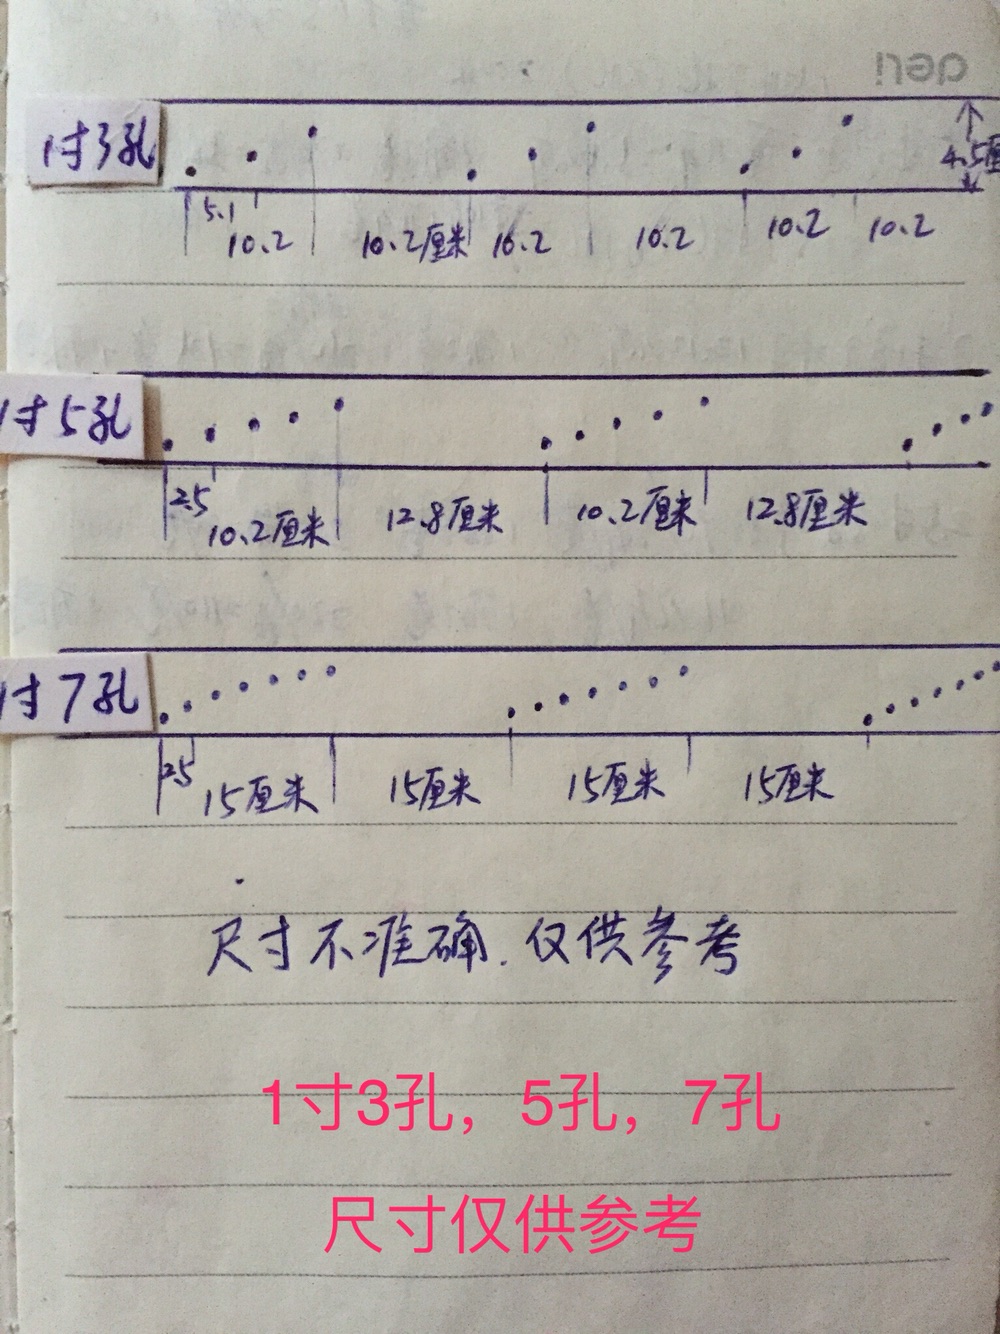 deli
1寸3孔
4.5厘
5.1
10.2 10.2厘米 10.2 10.2 10.2 10.2
寸5孔
2.5
10.2厘米 12.8厘米 10.2厘米 12.8厘米
寸7孔
25
15厘米 15厘米 15厘米 15厘米
尺寸不准确.仅供参考
1寸3孔，5孔，7孔
尺寸仅供参考